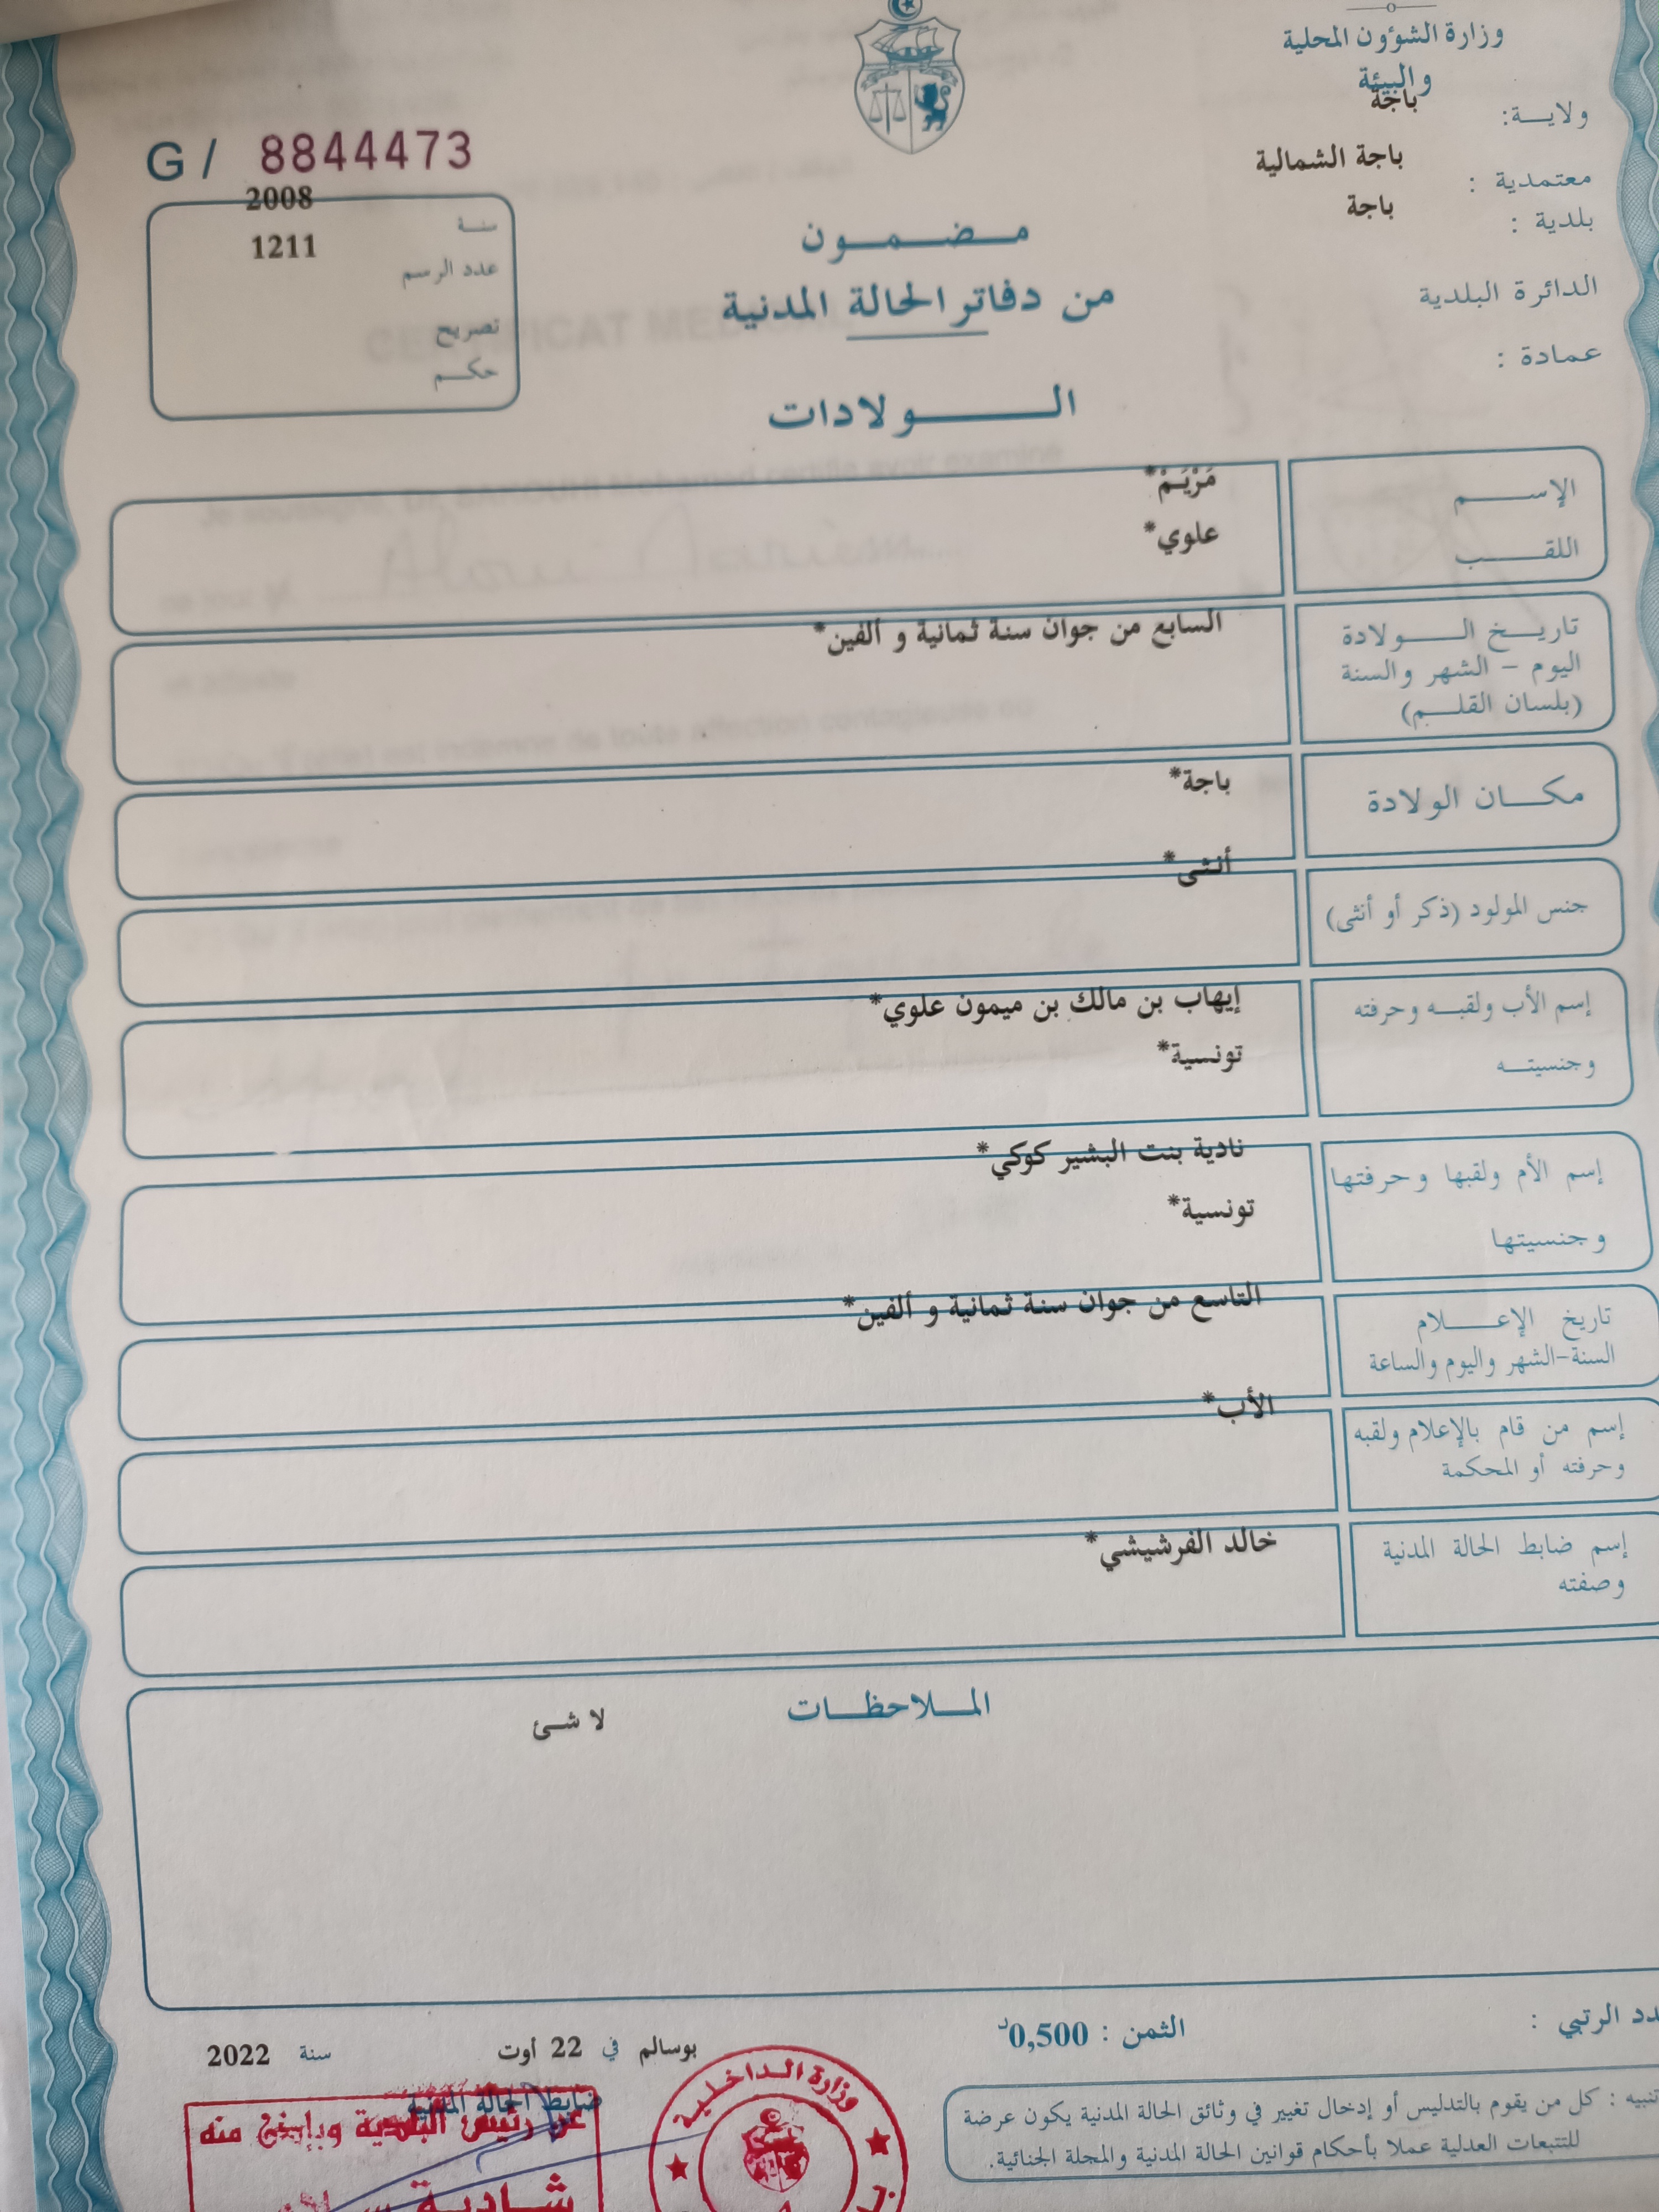 وزارة الشؤون المحلية
والبيئة
ولايـــة: باجة
معتمدية : باجة الشمالية
بلدية : باجة
الدائرة البلدية
عمادة :
G / 8844473
سنة 2008
عدد الرسم 1211
تصريح
حكم
مضمون
من دفاتر الحالة المدنية
الولادات
الإسم مَرْيَمْ*
اللقب علوي*
تاريخ الولادة السابع من جوان سنة ثمانية و ألفين*
اليوم – الشهر والسنة
(بلسان القلم)
مكان الولادة باجة*
جنس المولود (ذكر أو أنثى) أنثى*
إسم الأب ولقبه وحرفته إيهاب بن مالك بن ميمون علوي*
وجنسيته تونسية*
إسم الأم ولقبها وحرفتها نادية بنت البشير كوكي*
وجنسيتها تونسية*
تاريخ الإعلام التاسع من جوان سنة ثمانية و ألفين*
السنة-الشهر واليوم والساعة
إسم من قام بالإعلام ولقبه الأب*
وحرفته أو المحكمة
إسم ضابط الحالة المدنية خالد الفرشيشي*
وصفته
الملاحظات
لا شئ
الرتبي :
الثمن : 0,500د
بوسالم في 22 أوت سنة 2022
ضابط الحالة المدنية
عن رئيس البلدية وبإذن منه
شادية
وزارة الداخلية
تنبيه : كل من يقوم بالتدليس أو إدخال تغيير في وثائق الحالة المدنية يكون عرضة
للتتبعات العدلية عملا بأحكام قوانين الحالة المدنية والمجلة الجنائية.
CERTIFICAT MEDICAL